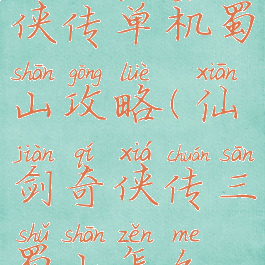 侠传单机蜀
shān gōng lüè xiān
山攻略(仙
jiàn qí xiá chuán sān
剑奇侠传三
shǔ shān zěn me
蜀山怎么